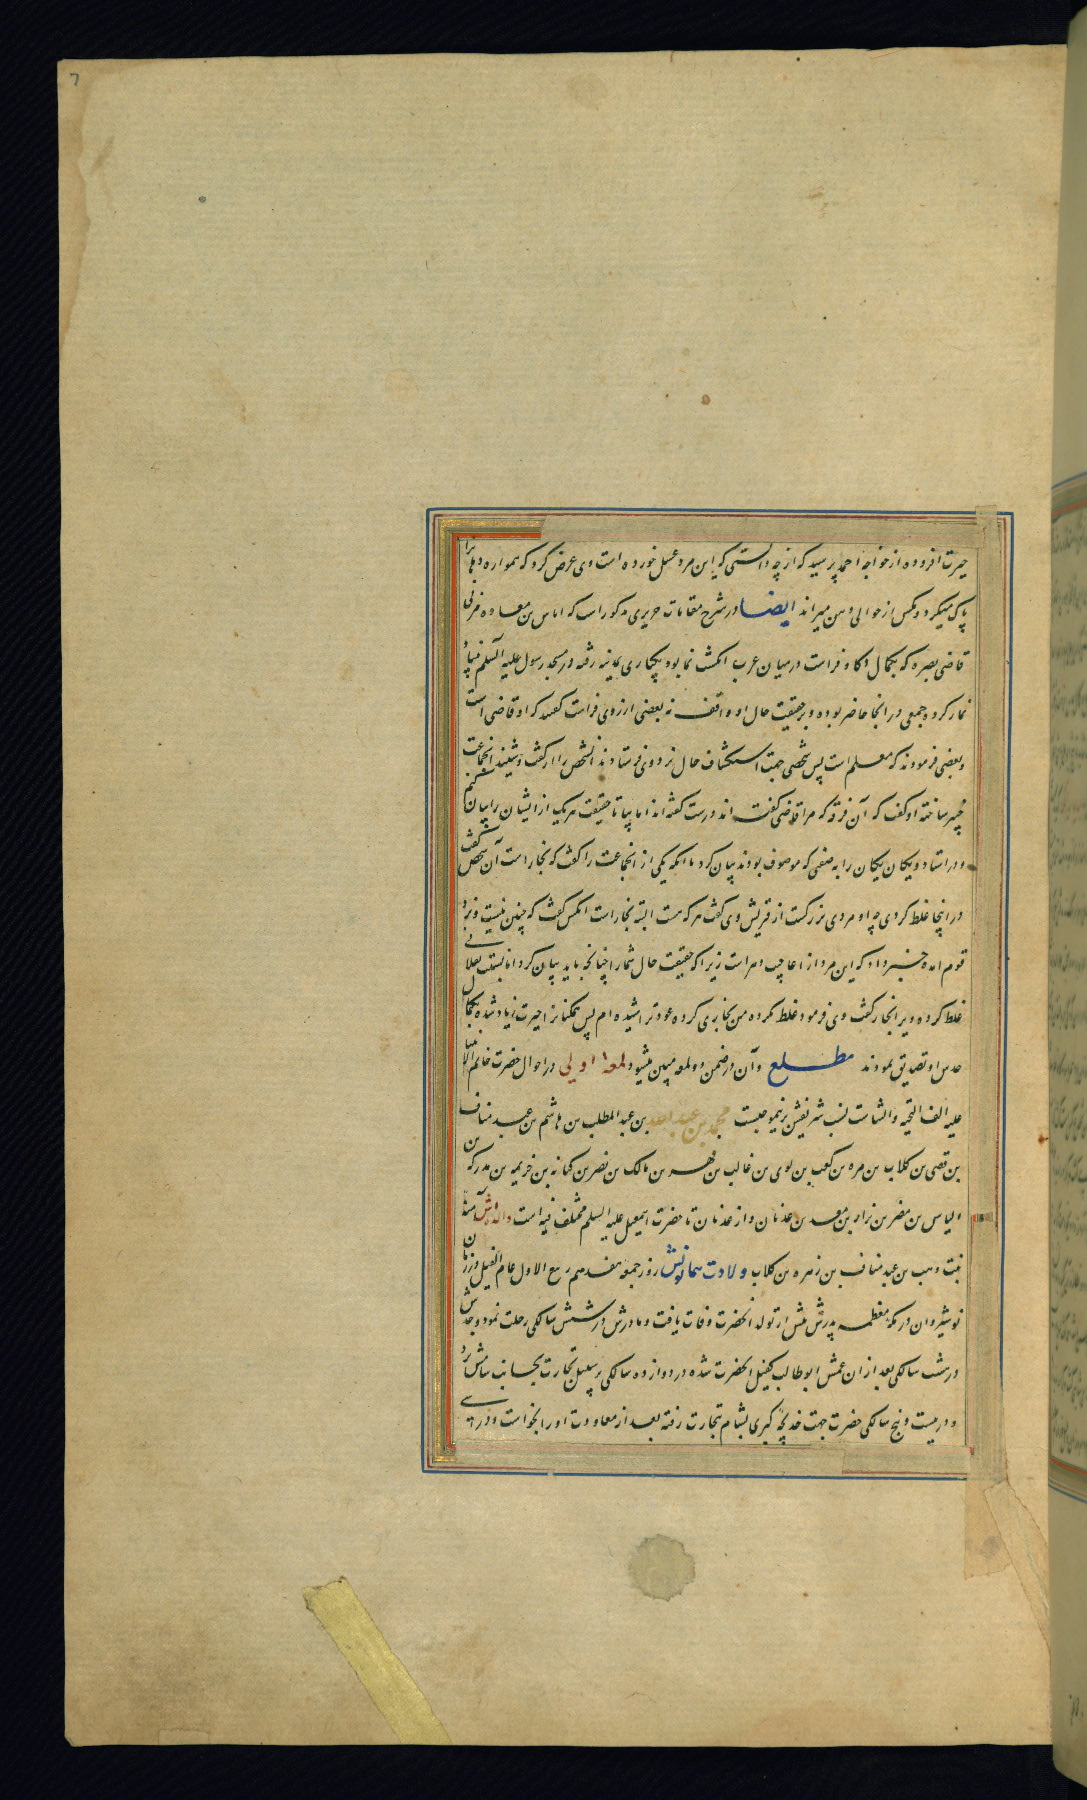 حیرت افزوده از خواجه احمد پرسید که از چه دانستی که این مرد عسل خورده است وی عرض کرد که همواره دهانرا
پاک میکرد و مکس از حوالی دهن میراند ایضا در شرح مقامات حریری مذکور است که ایاس بن معاویه مزنی
قاضی بصره که بکمال ذکا و فراست در میان عرب انکشت نما بود یکباری بمدینه رفته در مسجد رسول علیه السلم
نماز کرد و جمعی در انجا حاضر بوده و بر حقیقت حال او واقف نه بعضی از روی فراست کفتند که او قاضی است
و بعضی فرمودند که معلم است پس شخصی جهت استکشاف حال نزد وی فرستادند انشخص را
خبیر ساخته او کفت که آن فرقه که مرا قاضی کفته اند درست کفته اند اما بیا تا حقیقت هر یک از ایشان را بیان کنم
و در استاد و یکان یکان را به صفتی که موصوف بودند بیان کرد تا انکه یکی از انجماعت را کفت که نجار است آن شخص کفت
در اینجا غلط کردی چه او مردی بزرکست از قریش وی کفت هر که هست البته نجار است انکس کفت که چنین نیست و نزد
قوم امده خبر داد که این مرد از اعاجیب دهر است زیرا که حقیقت حال شما را چنانچه باید بیان کرد اما بنسبت بفلانی
غلط کرده ویرا نجار کفت وی فرمود غلط نکرده من نجاری کرده عود تراشیده ام پس همکنانرا حیرت زیاد شده بکمال
حدس او تصدیق نمودند مطلع و آن در ضمن دو لمعه مبین میشود لمعه اولی در احوال حضرت خاتم الانبیا
علیه الف التحیه و الثناست نسب شریفش برنیموجبست محمد بن عبد الله بن عبد المطلب بن هاشم بن عبد مناف
بن قصی بن کلاب بن مره بن کعب بن لوی بن غالب بن فهر بن مالک بن نضر بن کنانه بن خزیمه بن مدرکه بن
الیاس بن مضر بن نزار بن معد بن عدنان و از عدنان تا حضرت اسمعیل علیه السلم مختلف فیه است والده اش آمنه
بنت وهب بن عبد مناف بن زهره بن کلاب ولادت همایونش روز جمعه هفدهم ربیع الاول عام الفیل در زمان
نوشیروان در مکه معظمه پدرش پیش از تولد انحضرت وفات یافت و مادرش در شش سالکی رحلت نمود و جدش
در هشت سالکی بعد از ان عمش ابو طالب کفیل انحضرت شده در دوازده سالکی بر سبیل تجارت بجانب شامش برد
و در بیست و پنج سالکی حضرت جهت خدیجه کبری بشام تجارت رفته بعد از معاودت او را بخواست و در